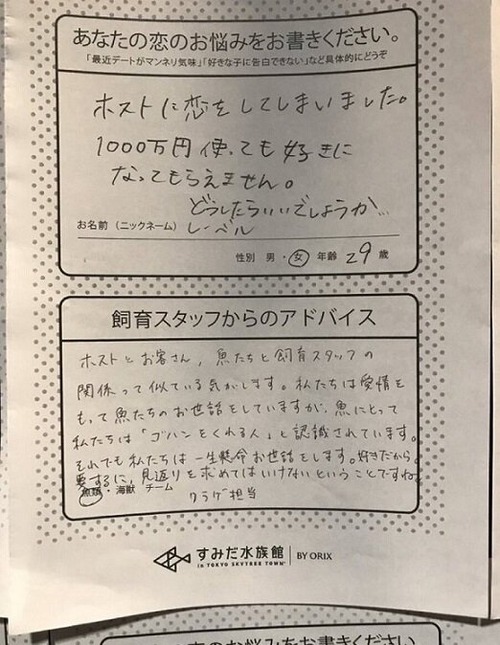 あなたの恋のお悩みをお書きください。
「最近デートがマンネリ気味」「好きな子に告白できない」など具体的にどうぞ
ホストに恋をしてしまいました。
1000万円使っても好きに
なってもらえません。
どうしたらいいでしょうか…
お名前(ニックネーム) レーベル
性別 男・女 年齢 29 歳
飼育スタッフからのアドバイス
ホストとお客さん、魚たちと飼育スタッフの
関係って似ている気がします。私たちは愛情を
もって魚たちのお世話をしていますが、魚にとって
私たちは「ゴハンをくれる人」と認識されています。
それでも私たちは一生懸命お世話をします。好きだから。
要するに、見返りを求めてはいけないということですね。
魚類・海獣 チーム クラゲ担当
すみだ水族館 BY ORIX
in TOKYO SKYTREE TOWN®
の恋のお悩みをお書きください